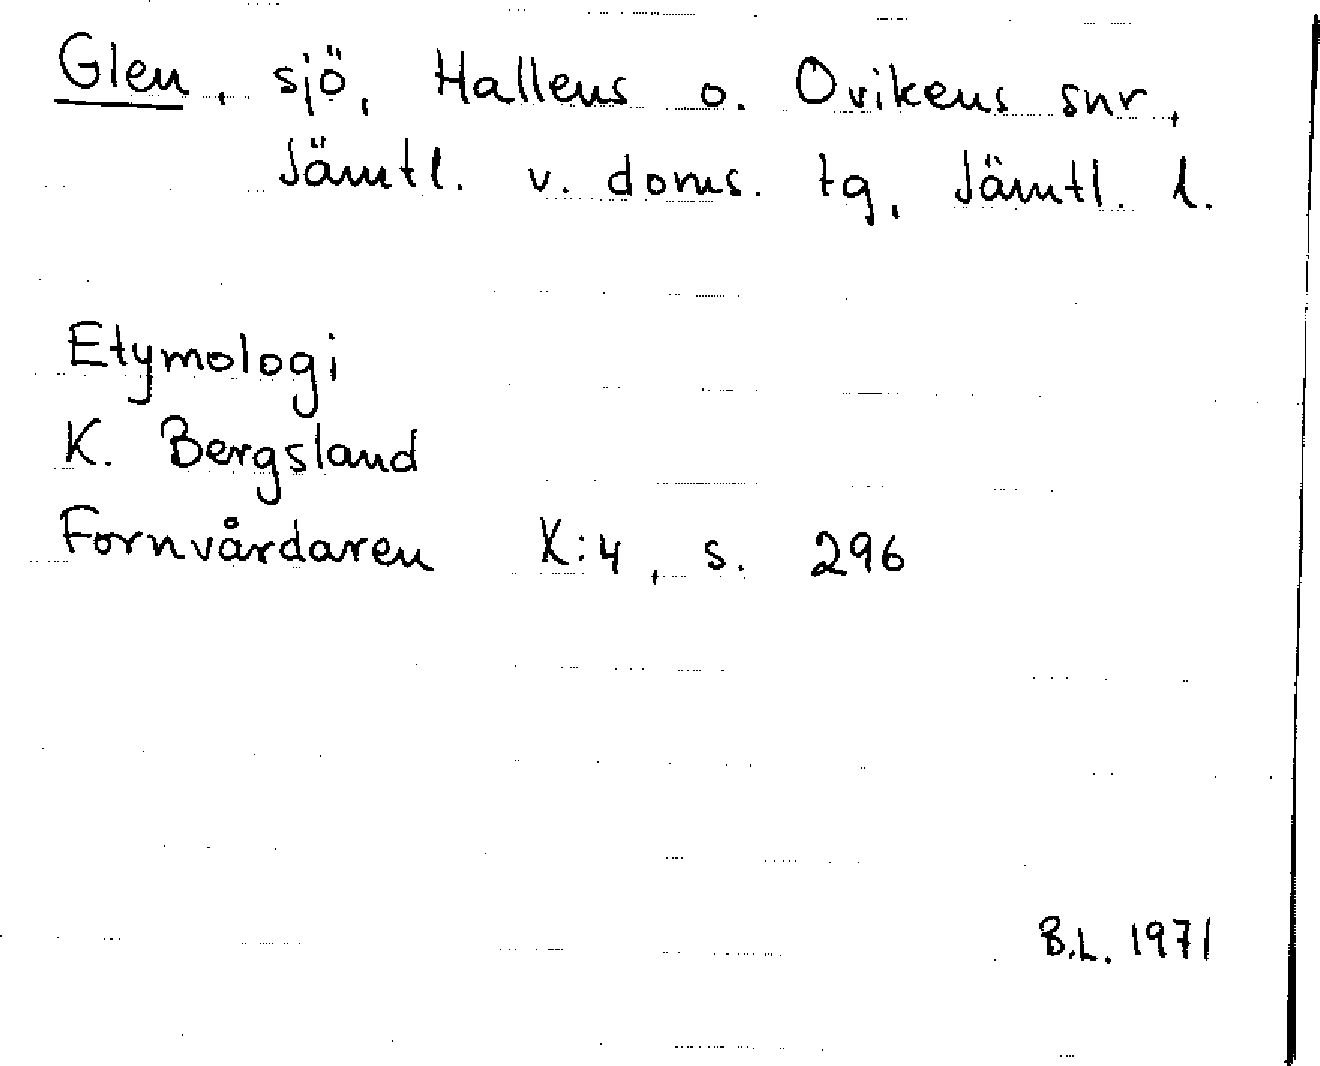 Glen, sjö, Hallens o. Ovikens snr,
Jämtl. v. doms. tg, Jämtl. l.
Etymologi
K. Bergsland
Fornvårdaren X:4, s. 296
B.L. 1971